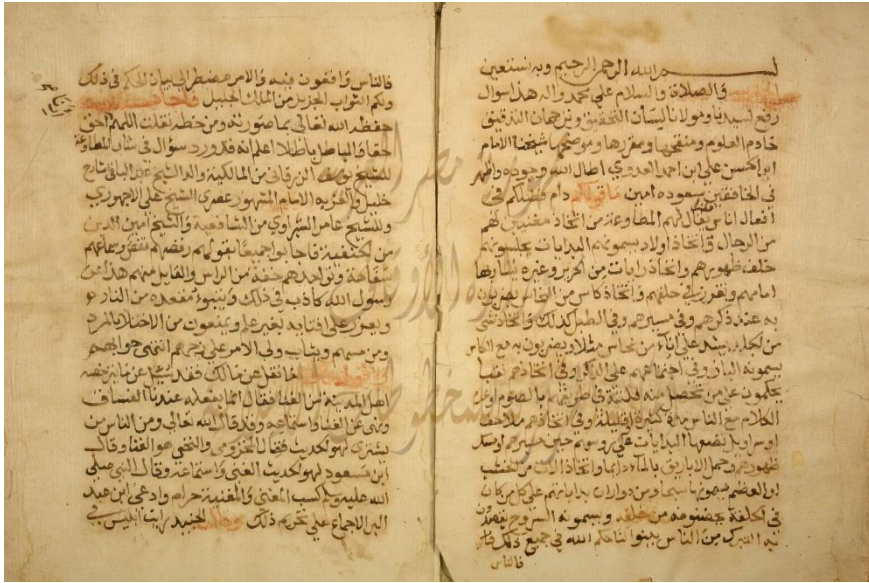 بسم الله الرحمن الرحيم وبه نستعين
والصلاة والسلام علي محمد واله هذا سوال
رفع لسيدنا ومولانا لسان التحقيق وترجمان التدقيق
خادم العلوم ومنقحها ومقررها وموضحها شيخنا الامام
ابو الحسن علي ابن احمد العدوي اطال الله وجوده واظهر
في الخافقين سعوده امين ما قولكم دام فضلكم في
افعال اناس يقال لهم المطاوعة من اتخاذ مغنيين لهم
من الرجال واتخاذ اولاد يسمونهم البدايات يجلسونهم
خلف ظهورهم واتخاذ رايات من الحرير وغيره
امامهم في حلقهم واتخاذ كاس من النحاس يضربون
به عند ذكرهم وفي مسيرهم وفي الطبل كذلك واتخاذ شي
من الجلد علي من نحاس مثلا ويضربون به مع الكاس
يسمونه الباز وفي اجتماعهم علي الذكر وفي اتخاذهم
يحكمون علي من منه في طريقهم بالصوم وعدم
الكلام مع الناس مدة كثيرة او قليلة وفي اتخاذهم
البدايات علي روسهم حين مسيرهم وسد
ظهورهم وحمل الاباريق بالماء دايما واتخاذ الات من الخشب
او العظم يسمونها علي كل من كان
في الحلقة من خلفه ويسمونه السروح يقصدون
به التبرك من الناس بينوا لنا حكم الله في جميع ذلك
فالناس
فالناس واقفون فيه والامر مضطر الي بيان الحكم في ذلك
ولكم الثواب الجزيل من الملك الجليل فاجاب
حفظه الله تعالي بما صورته ومن خطه نقلت اللهم احق
حقا والباطل باطلا اعلم انه قد ورد سؤال في شان المطاوعة
للشيخ يوسف الزرقاني من المالكية والد الشيخ عبد الباقي شارح
خليل الامام المشهور عصري الشيخ علي الاجهوري
وللشيخ عامر الشبراوي من الشافعية والشيخ امين الدين
من الحنفية فاجابوا جميعا بقولهم رقصهم نقص وسماعهم
سفاهة وتواجدهم خفة من الراس والقايل منهم هذا عن
رسول الله كاذب في ذلك وليتبوء مقعده من النار
ويعزر علي افتايه بغير علم ويمنعون من الاختلا بالمرد
ومن مسهم ويثاب ولي الامر علي زجرهم انتهي جوابهم
ما نقل عن مالك فقد سيل عن ما يرخصه
اهل المدينة من الغنا فقال انما يفعله عندنا الفساق
ونهي عن الغنا واستماعه وقد قال الله تعالي ومن الناس من
يشتري لهو الحديث فقال المخزومي والنخعي هو الغنا وقال
ابن مسعود لهو الحديث الغني واستماعه وقال النبي صلي
الله عليه وسلم كسب المغني والمغنية حرام وادعي ابن عبد
البر الاجماع علي تحريم ذلك وقال الجنيد رايت ابليس في